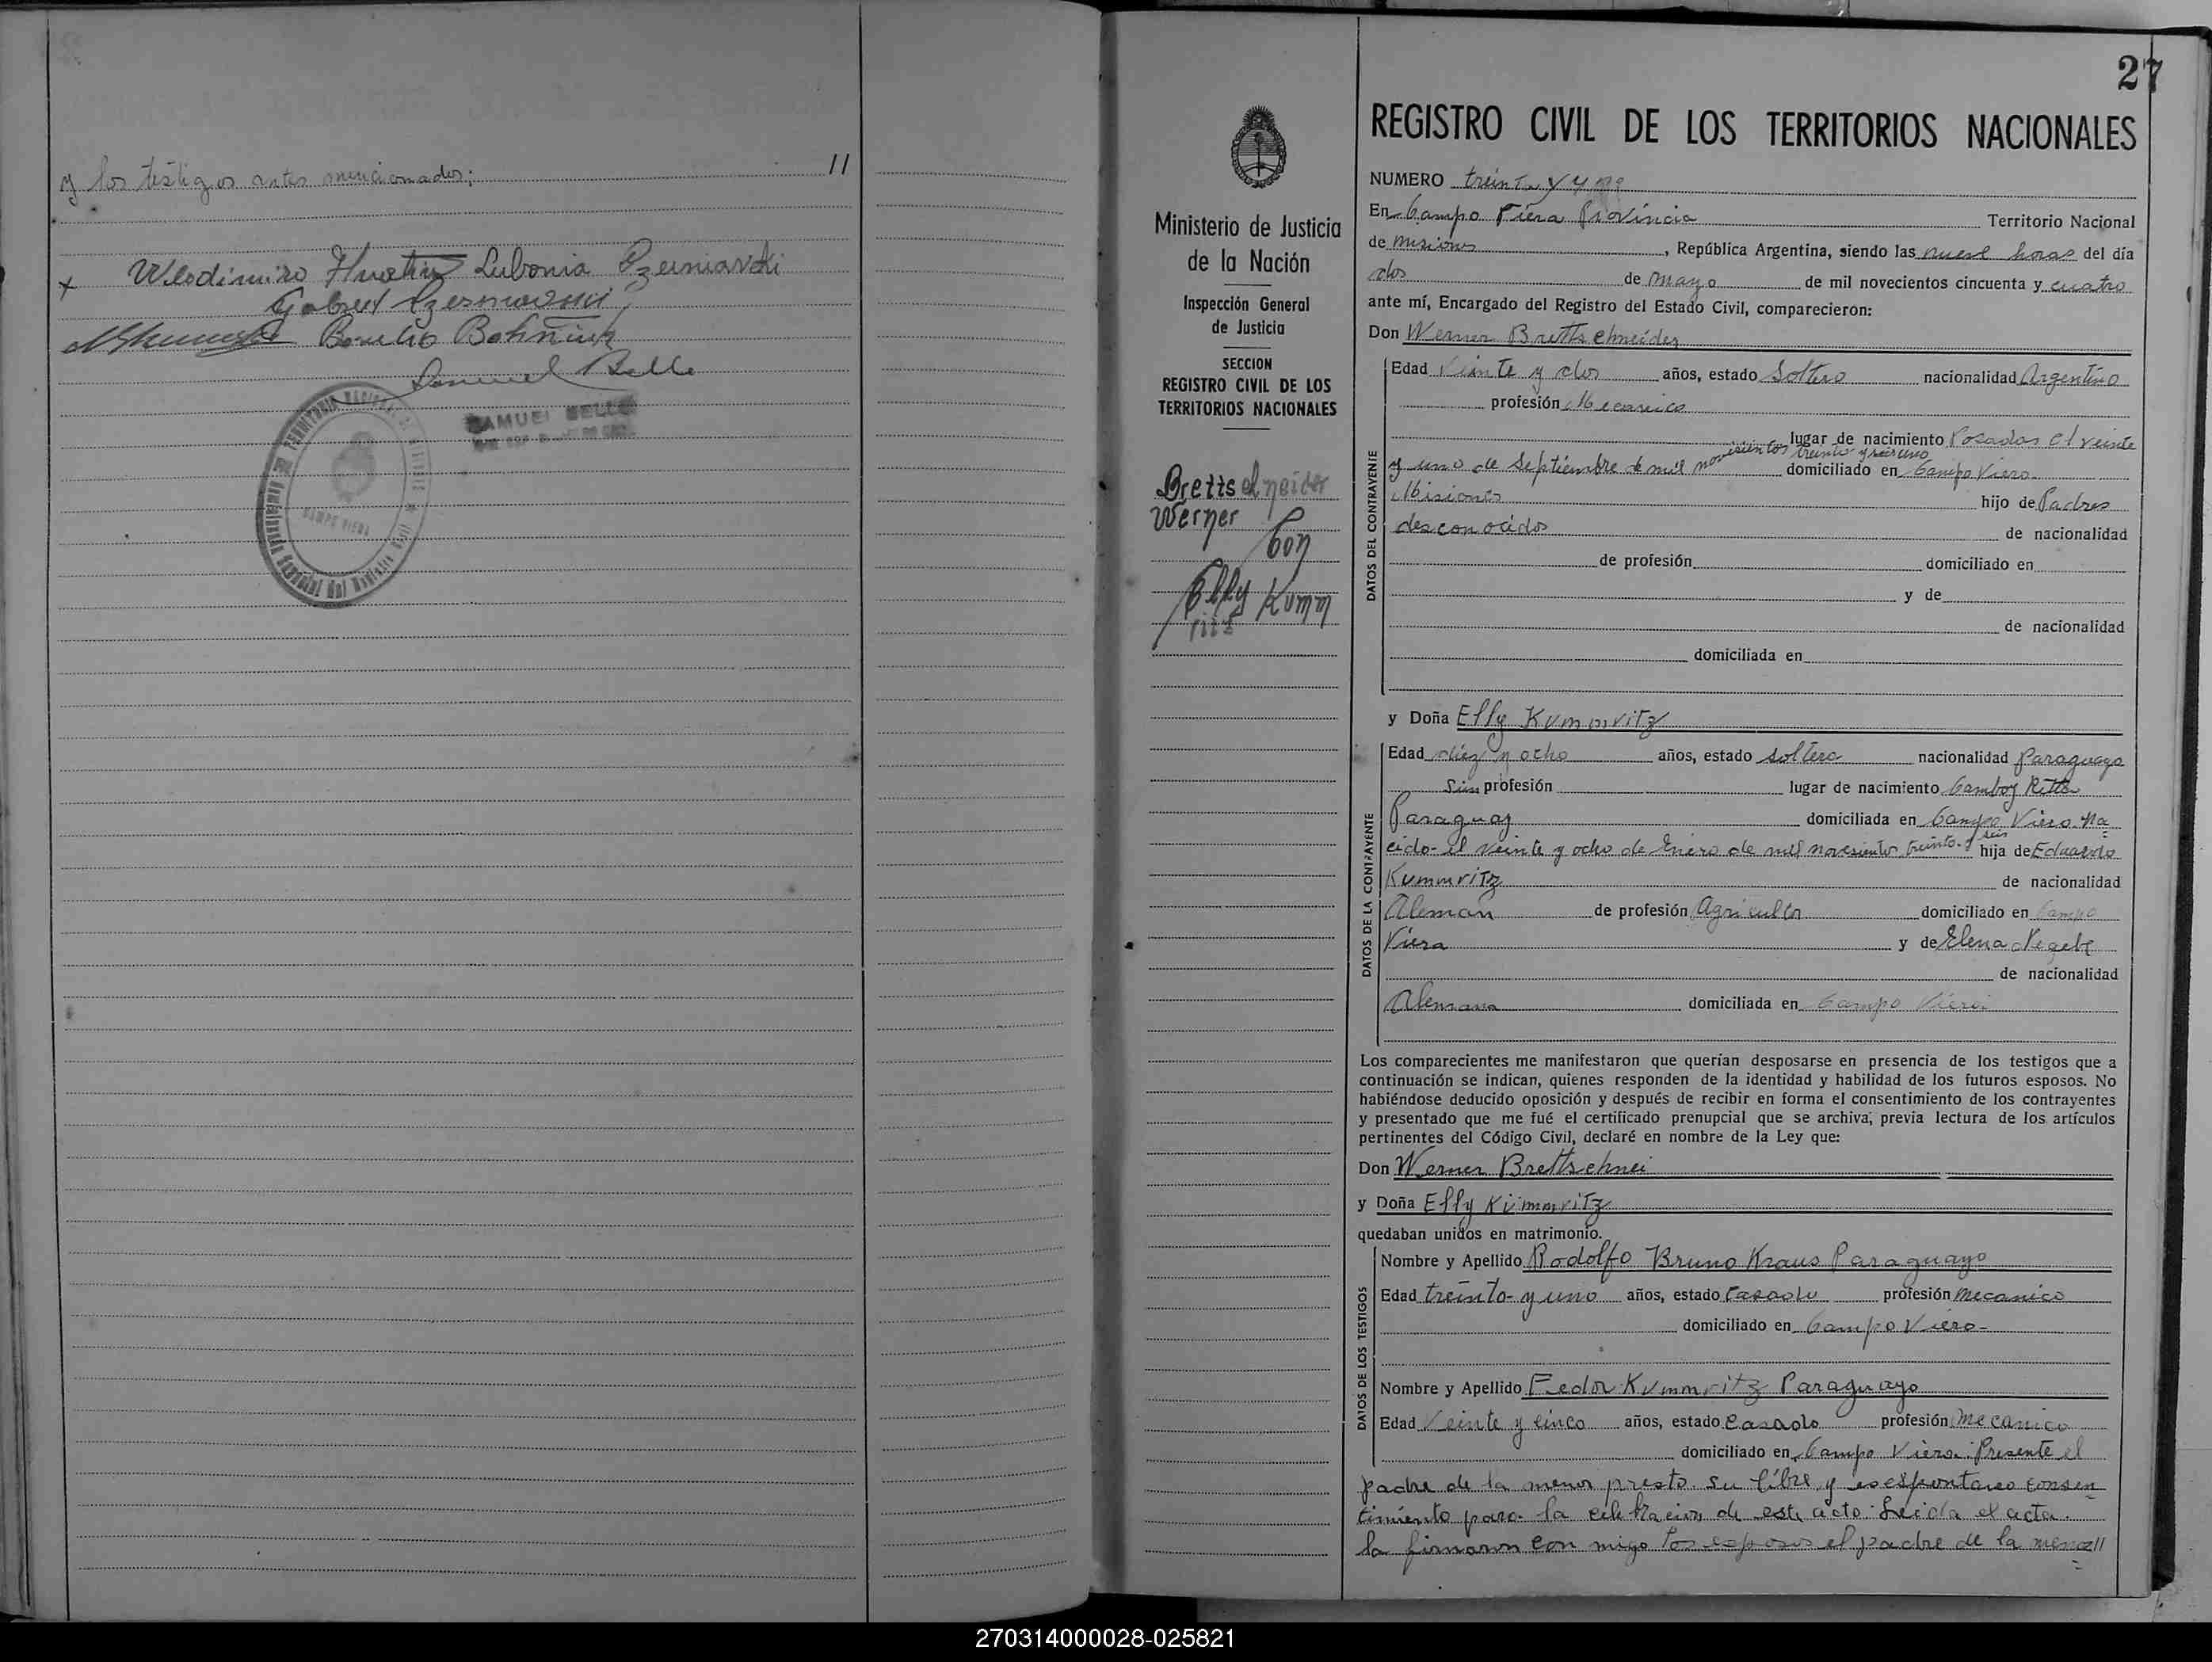 y los testigos antes mencionados; //
x Wlodimiro Lubonia Czerniavski
Gabriel
Basilio
Samuel Belló
SAMUEL BELLO
CAMPO VIERA
27
REGISTRO CIVIL DE LOS TERRITORIOS NACIONALES
Ministerio de Justicia
de la Nación
Inspección General
de Justicia
SECCION
REGISTRO CIVIL DE LOS
TERRITORIOS NACIONALES
Brettschneider
Werner
Con
Elly Kumm
ritz
NUMERO treinta y
En Campo Viera Provincia Territorio Nacional
de Misiones, República Argentina, siendo las nueve horas del día
dos de mayo de mil novecientos cincuenta y cuatro
ante mí, Encargado del Registro del Estado Civil, comparecieron:
Don Werner Brettschneider
DATOS DEL CONTRAYENTE
Edad Veinte y dos años, estado Soltero nacionalidad Argentino
profesión Mecanico
lugar de nacimiento Posadas el veinte
y uno de Septiembre de mil novecientos treinta y uno domiciliado en Campo Viera
Misiones hijo de Padres
desconocidos de nacionalidad
de profesión domiciliado en
y de
de nacionalidad
domiciliada en
y Doña Elly Kummritz
DATOS DE LA CONTRAYENTE
Edad diez y ocho años, estado soltera nacionalidad Paraguaya
Sin profesión lugar de nacimiento Camboy Ritta
Paraguay domiciliada en Campo Viera Na
cido el veinte y ocho de Enero de mil novesiento treinta y seis hija de Eduardo
Kummritz de nacionalidad
Aleman de profesión Agricultor domiciliado en Campo
Viera y de Elena
de nacionalidad
Alemana domiciliada en Campo Viera
Los comparecientes me manifestaron que querían desposarse en presencia de los testigos que a
continuación se indican, quienes responden de la identidad y habilidad de los futuros esposos. No
habiéndose deducido oposición y después de recibir en forma el consentimiento de los contrayentes
y presentado que me fué el certificado prenupcial que se archiva, previa lectura de los artículos
pertinentes del Código Civil, declaré en nombre de la Ley que:
Don Werner Brettschnei
y Doña Elly Kümmritz
quedaban unidos en matrimonio.
DATOS DE LOS TESTIGOS
Nombre y Apellido Rodolfo Bruno Kraus Paraguayo
Edad treinta y uno años, estado Casado profesión mecanico
domiciliado en Campo Viera
Nombre y Apellido Fedor Kummritz Paraguayo
Edad Veinte y cinco años, estado Casado profesión Mecanico
domiciliado en Campo Viera. Presente el
padre de la menor presto su libre y espontaneo consen
timiento para la celebracion de este acto. Leida el acta
la firmaron con migo los esposos el padre de la menor //
270314000028-025821